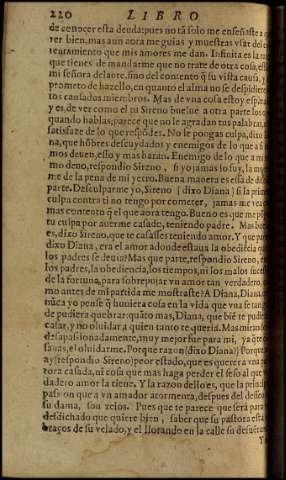 220 LIBRO
de conocer esta deuda: pues no tã solo me enseñaste a q
rer bien, mas aun aora me guias y muestras vsar del cõ
tentamiento que mis amores me dan. Infinita es la raz
que tienes de mandarme que no trate de otra cosa, est
mi señora delante, sino del contento q̃ su vista causa, y
prometo de hazello, en quanto el alma no se despidiere
tos cansados miembros. Mas de vna cosa estoy espan
y es, de ver como el tu Sireno buelue a otra parte los
quando hablas, parece que no le agradan tus palabras,
satisfaze de lo que respõdes. No le pongas culpa, dixo
na, que hõbres descuydados y enemigos de lo que a si m
mos deuen, esso y mas haran. Enemigo de lo que a mi
mo deuo, respondio Sireno, si yo jamas lo fuy, la mue
me de la pena de mi yerro. Buena manera es essa de dis
parte. Desculparme yo, Sireno (dixo Diana) si la prim
culpa contra ti no tengo por cometer, jamas me vea
mas contento q̃ el que aora tengo. Bueno es que me p
tu culpa por auerme casado, teniendo padre. Mas bu
es, dixo Sireno, que te casasses teniendo amor. Y que pa
dixo Diana, era el amor adonde estaua la obediẽcia q
los padres se deuia? Mas que parte, respondio Sireno, e
los padres, la obediencia, los tiempos, ni los malos suces
de la fortuna, para sobrepujar vn amor tan verdadero,
mo antes de mi partida me mostraste? A Diana, Diana,
nũca yo pensè q̃ huuiera cosa en la vida que vna fe tan g
de pudiera quebrar: quãto mas, Diana, que biẽ te pudie
casar, y no oluidar a quien tanto te queria. Mas mirand
desapassionadamente, muy mejor fue para mi, ya q̃ te
sauas, el oluidarme. Porque razon (dixo Diana) Porque
ay (respondio Sireno) peor estado, que es querer a vna pa
tora casada, ni cosa que mas haga perder el seso al que
dadero amor la tiene. Y la razon dello es, que la princip
passion que a vn amador atormenta, despues del desseo
su dama, son zelos. Pues que te parece que será para
desdichado que quiere bien, saber que su pastora està
braços de su velado, y el llorando en la calle su desuentu